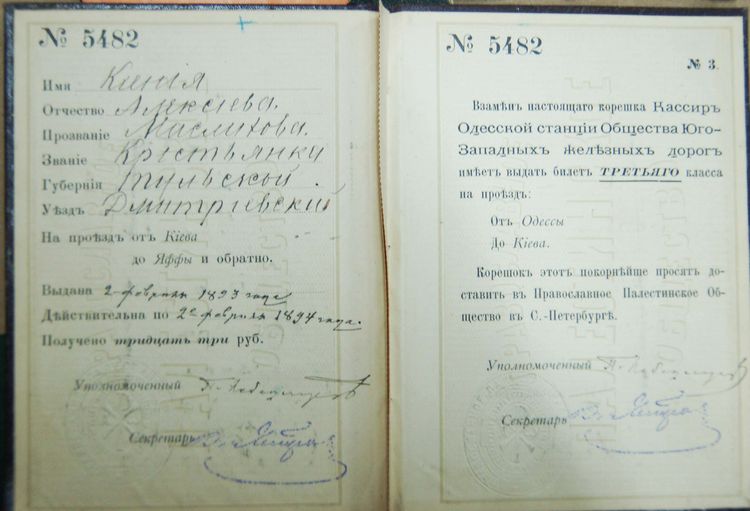 № 5482
Имя Ксенія
Отчество Алексіева
Прозваніе Маслихова.
Званіе Крестьянки
Губернія Тульской.
Уѣздъ Дмитріевскій
На проѣздъ отъ Кіева
до Яффы и обратно.
Выдана 2 февраля 1893 года
Дѣйствительна по 2е февраля 1894 года.
Получено тридцать три руб.
Уполномоченный
Секретарь
№ 5482
№ 3.
Взамѣнъ настоящаго корешка Кассиръ
Одесской станціи Общества Юго-
Западныхъ желѣзныхъ дорогъ
имѣетъ выдать билетъ ТРЕТЬЯГО класса
на проѣздъ:
Отъ Одессы
До Кіева.
Корешокъ этотъ покорнѣйше просятъ до-
ставить въ Православное Палестинское Об-
щество въ С.-Петербургѣ.
Уполномоченный
Секретарь